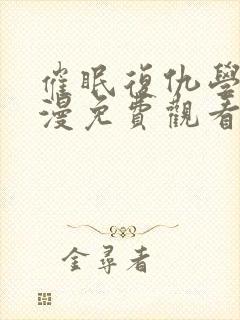 催眠復仇學
漫免費觀看
金尋者